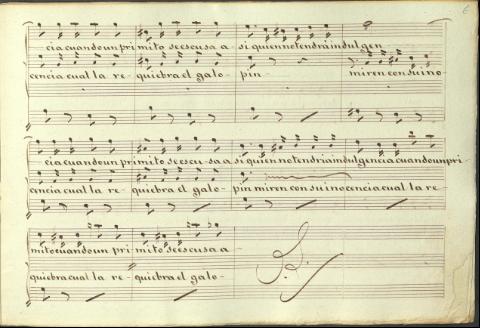 6
cia cuando un primito se escusa a si quien no tendrá indulgen
cencia cual la re- quiebra el galo- pin miren con su ino
cia cuando un primito se escu-sa a si quien no tendria indulgencia cuando un pri
cencia cual la re- quiebra el galo- pin miren con su ino cencia cual la re-
mito cuando un pri mito se escusa a
quiebra cual la re- quiebra el galo-